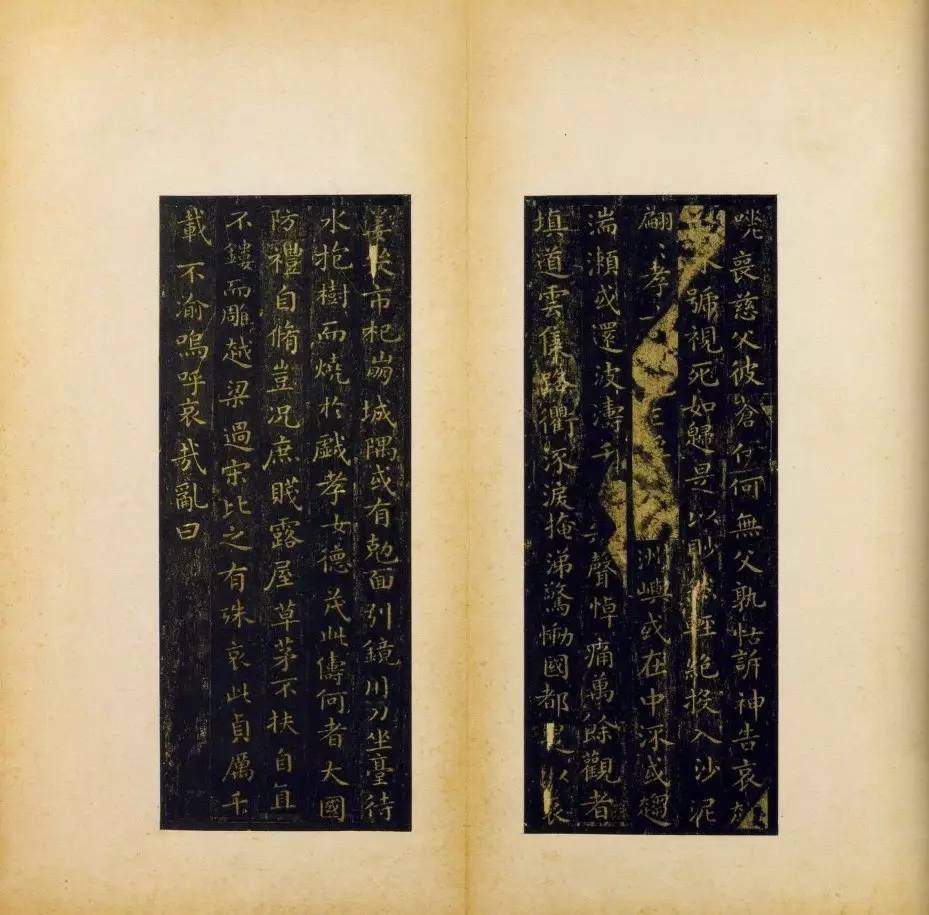 咷哀慈父彼蒼伊何無父孰怙訴神告哀
號視死如歸是以眇然輕絕投入沙泥
翩〻孝洲嶼或在中流或趨
湍瀨或還波濤千聲悼痛萬餘觀者
填道雲集路衢流淚掩涕驚慟國都是以哀
姜哭市杞崩城隅或有尅面引鏡刀坐臺待
水抱樹而燒於戲孝女德茂此儔何者大國
防禮自脩豈況庶賤露屋草茅不扶自直
不鏤而雕越梁過宋比之有殊哀此貞厲千
載不渝嗚呼哀哉亂曰